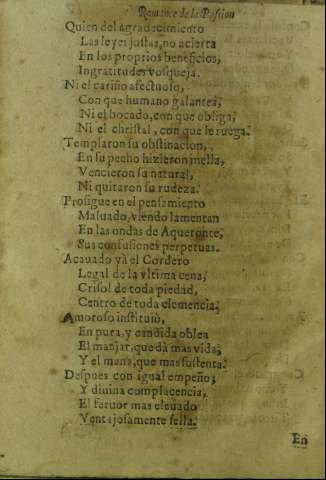 Romance de la Passion
Quien del agradecimiento
Las leyes justas, no acierta
En los proprios beneficios,
Ingratitudes vosqueja.
Ni el cariño afectuoso,
Con que humano galantea,
Ni el bocado, con que obliga,
Ni el christal, con que le ruega.
Templaron su obstinacion,
En su pecho hizieron mella,
Vencieron su natural,
Ni quitaron su rudeza.
Prosigue en el pensamiento
Maluado, viendo lamentan
En las ondas de Aqueronte,
Sus confusiones perpetuas.
Acauado yà el Cordero
Legal de la vltima cena,
Crisol de toda piedad,
Centro de toda clemencia.
Amoroso instituiò,
En pura, y candida oblea
El manjar, que dà mas vida,
Y el manà, que mas sustenta.
Despues con igual empeño,
Y diuina complacencia,
El feruor mas eleuado
Ventajosamente sella.
En